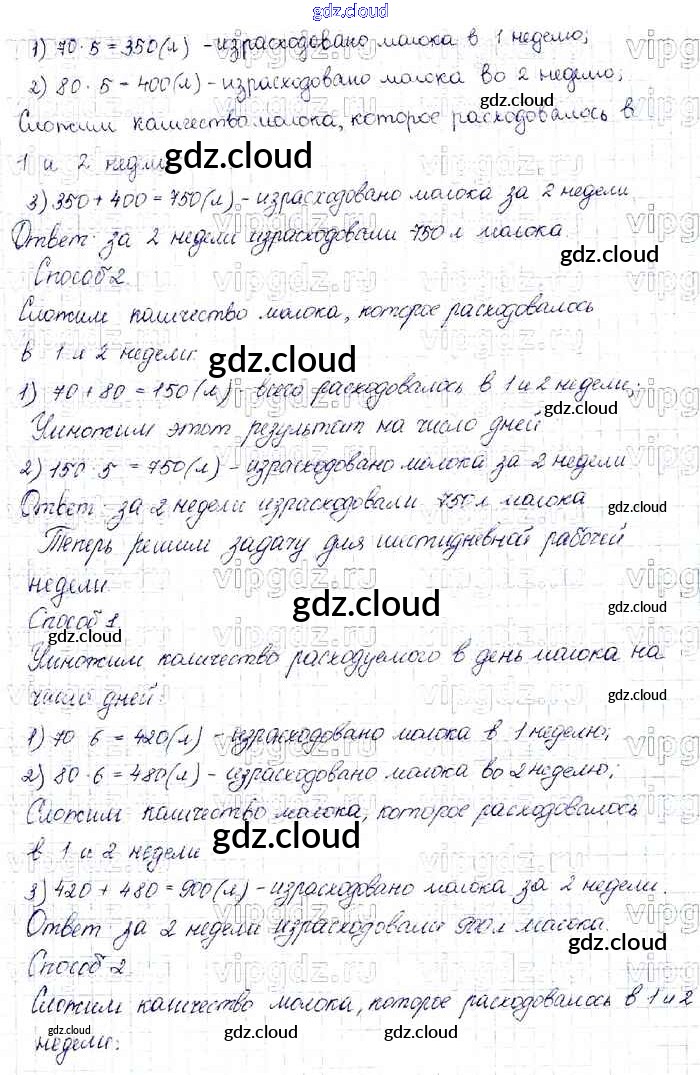 gdz.cloud
1) 70 · 5 = 350 (л) - израсходовано молока в 1 неделю;
2) 80 · 5 = 400 (л) - израсходовано молока во 2 неделю;
gdz.cloud
Сложим количество молока, которое расходовалось в
1 и 2 недели
gdz.cloud
3) 350 + 400 = 750 (л) - израсходовано молока за 2 недели
Ответ: за 2 недели израсходовали 750 л молока.
gdz.cloud
Способ 2
Сложим количество молока, которое расходовалось
в 1 и 2 недели:
gdz.cloud
1) 70 + 80 = 150 (л) - всего расходовалось в 1 и 2 недели;
gdz.cloud
Умножим этот результат на число дней
2) 150 · 5 = 750 (л) - израсходовано молока за 2 недели
Ответ: за 2 недели израсходовали 750 л молока
gdz.cloud
Теперь решим задачу для шестидневной рабочей
недели
gdz.cloud
gdz.cloud
Способ 1
gdz.cloud
Умножим количество расходуемого в день молока на
число дней:
gdz.cloud
1) 70 · 6 = 420 (л) - израсходовано молока в 1 неделю;
2) 80 · 6 = 480 (л) - израсходовано молока во 2 неделю;
Сложим количество молока, которое расходовалось
в 1 и 2 недели
gdz.cloud
3) 420 + 480 = 900 (л) - израсходовано молока за 2 недели.
Ответ за 2 недели израсходовали 900 л молока.
gdz.cloud
Способ 2
Сложим количество молока, которое расходовалось в 1 и 2
недели:
gdz.cloud
gdz.cloud
gdz.cloud
gdz.cloud